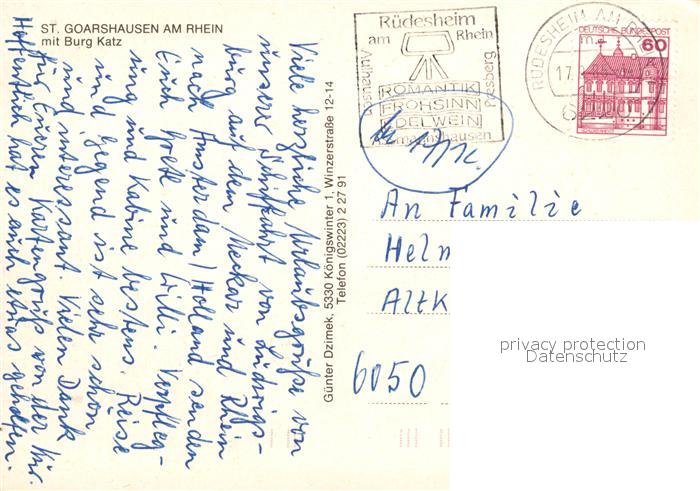 ST. GOARSHAUSEN AM RHEIN
mit Burg Katz
Viele herzliche Urlaubsgrüße von
unserer Schiffahrt von Ludwigs-
burg auf dem Neckar und Rhein
nach Amsterdam/Holland senden
Euch Grete und Willi. Verpfleg-
ung und Kabine bestens. Reise
und Gegend ist sehr schön
und interessant. Vielen Dank
für Eueren Kartengruß von der Kur.
Hoffentlich hat es auch etwas geholfen.
Günter Dzimek, 5330 Königswinter 1, Winzerstraße 12-14
Telefon (02223) 2 27 91
Rüdesheim
am Rhein
Aulhausen
Presberg
ROMANTIK
FROHSINN
EDELWEIN
Assmannshausen
RÜDESHEIM AM
17.
DEUTSCHE BUNDESPOST
60
An Familie
Helm
Altk
6050
privacy protection
Datenschutz